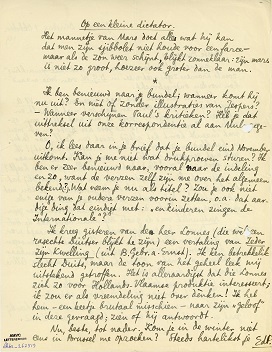 Op een kleine dictator.
Het mannetje van Mars doet alles wat hij kan
dat men zijn sjibbolet niet houde voor een farce —
maar als de zon weer schijnt, blijkt zonneklaar: zijn mars
is niet zo groot, hoezeer ook groter dan de man.
*
Ik ben benieuwd naar je bundel; wanneer komt hij
nu uit? En met of zonder illustraties van Jespers?
— Wanneer verschijnen Paul's kritieken? Heb je dat
uittreksel uit onze korrespondentie al aan
O, ik lees daar in je brief dat je bundel eind November
uitkomt. Kan je me niet wat drukproeven sturen? Ik
ben er zeer benieuwd naar, vooral naar de indeling
en zo, want de verzen zelf zijn me over het algemeen
bekend. Wat neem je nu als titel? Zou je ook niet
enige van je oudere verzen voegen zetten, o.a. dat aar-
dige ding dat eindigt met: „en kinderen zingen de
Internationale"?
Ik kreeg gisteren van de heer Konnes (die een
rasechte Duitser blijkt te zijn) een vertaling van Ieder
zijn Kwelling (uit B. Gebra. Ernst). Ik ken betrekkelijk
slecht Duits, maar de toon van het geheel leek mij
uitstekend getroffen. Het is alleraardigst dat die Konnes
zich zo voor Hollands-Vlaamse produktie interesseert,
ik zou er als vreemdeling niet over denken! Ik heb
hem — een beetje brutaal misschien — naar zijn „geloof"
in deze gevraagd; zien of hij antwoordt.
Nu, beste, tot nader. Kom je in de winter niet
eens in Brussel me opzoeken? Steeds hartelikst je
AMVC